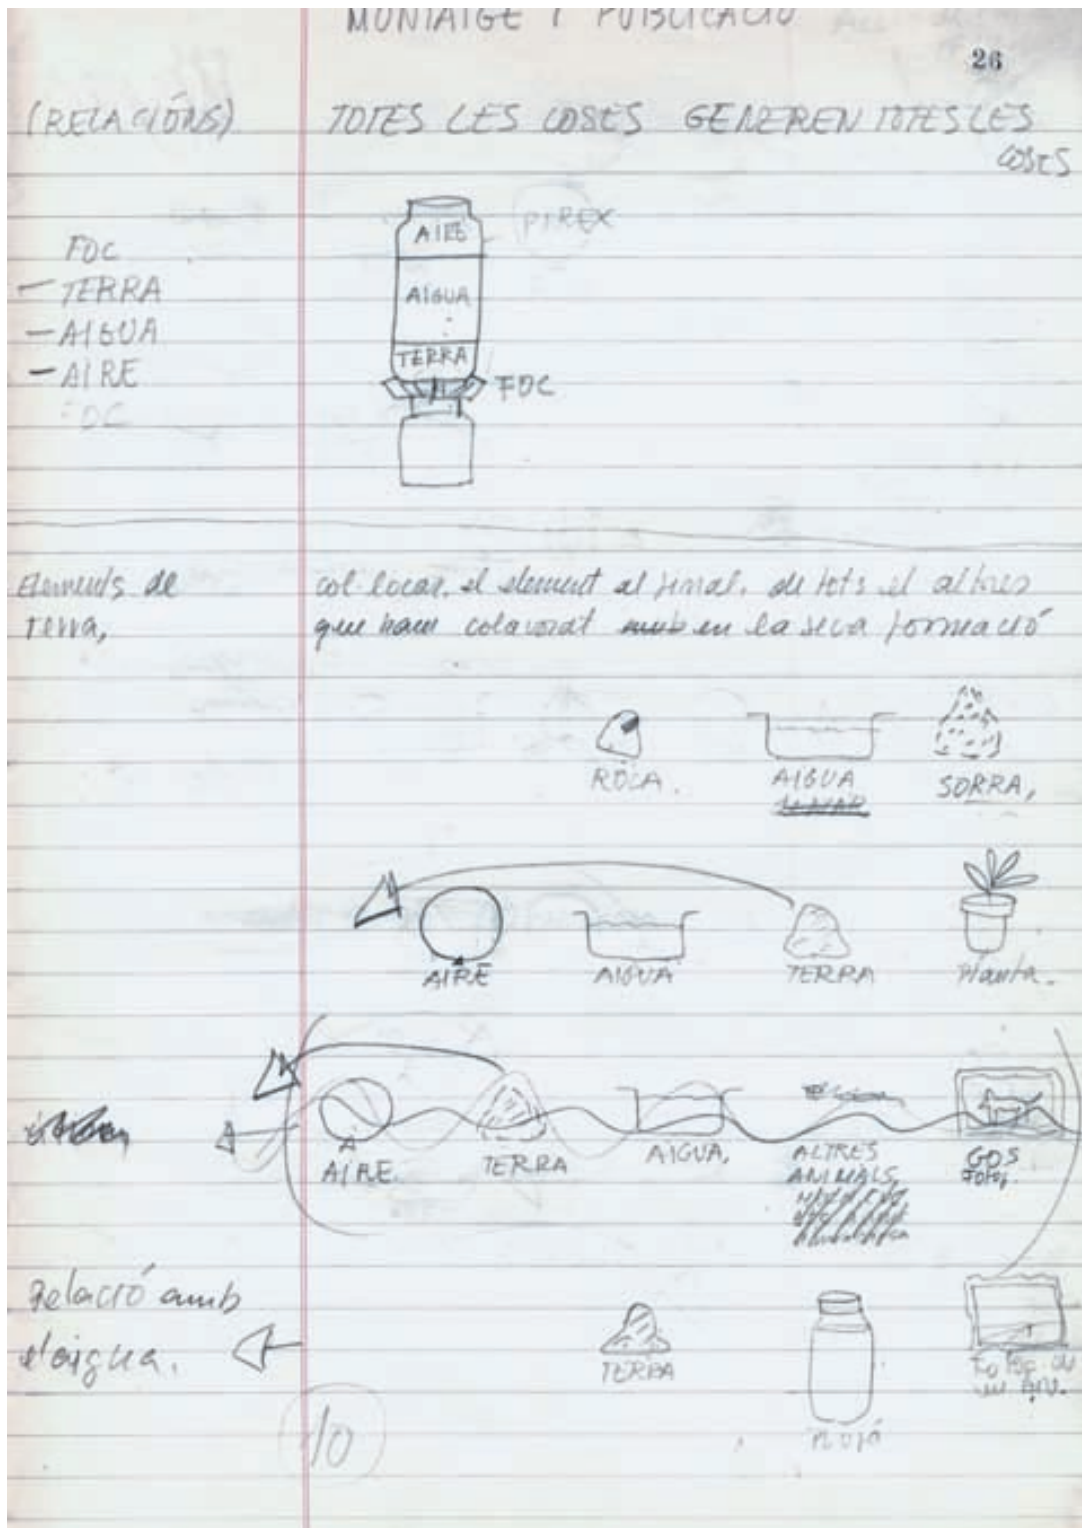 MUNTATGE I PUBLICACIÓ
26
(RELACIÓNS)
TOTES LES COSES GENEREN TOTES LES
COSES
FOC
TERRA
AIGUA
AIRE
FOC
PIREX
AIRE
AIGUA
TERRA
FOC
Elements de
terra,
col·locar, el element al final, de tots el altres
que ham colavorat en la seva formació
ROCA.
AIGUA
SORRA,
AIRE
AIGUA
TERRA
Planta.
AIRE.
TERRA
AIGUA,
ALTRES
ANIMALS,
GOS
FOTO,
Relació amb
l'aigua.
TERRA
PLUJA
10